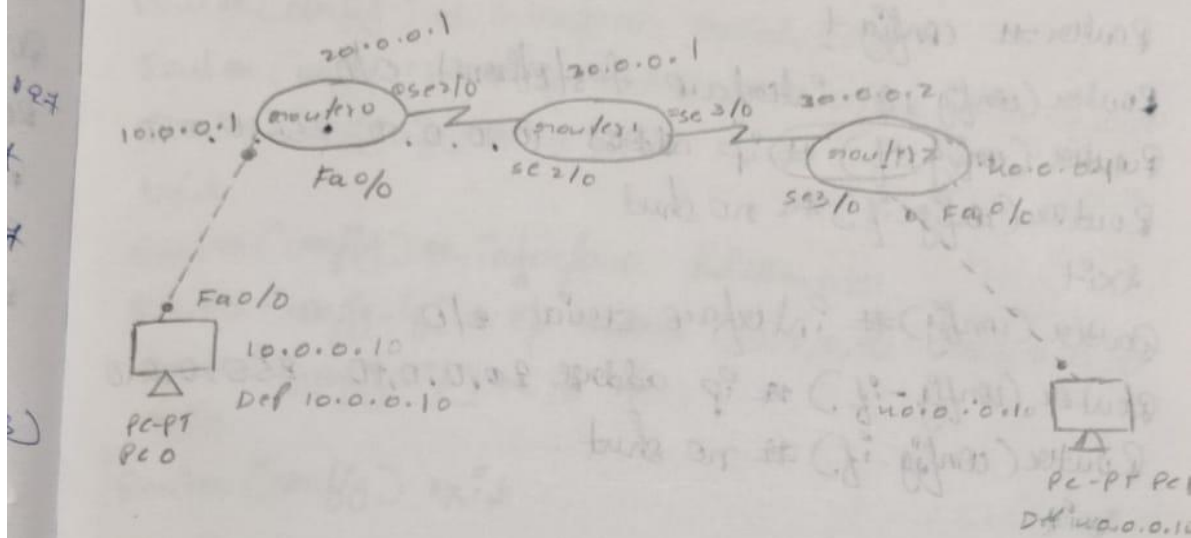 20.0.0.1
20.0.0.1
30.0.0.2
10.0.0.1
router0
se2/0
router1
se3/0
router2
Fa0/0
se2/0
se3/0
Fa0/0
Fa0/0
10.0.0.10
Def 10.0.0.10
40.0.0.10
PC-PT
PC0
PC-PT